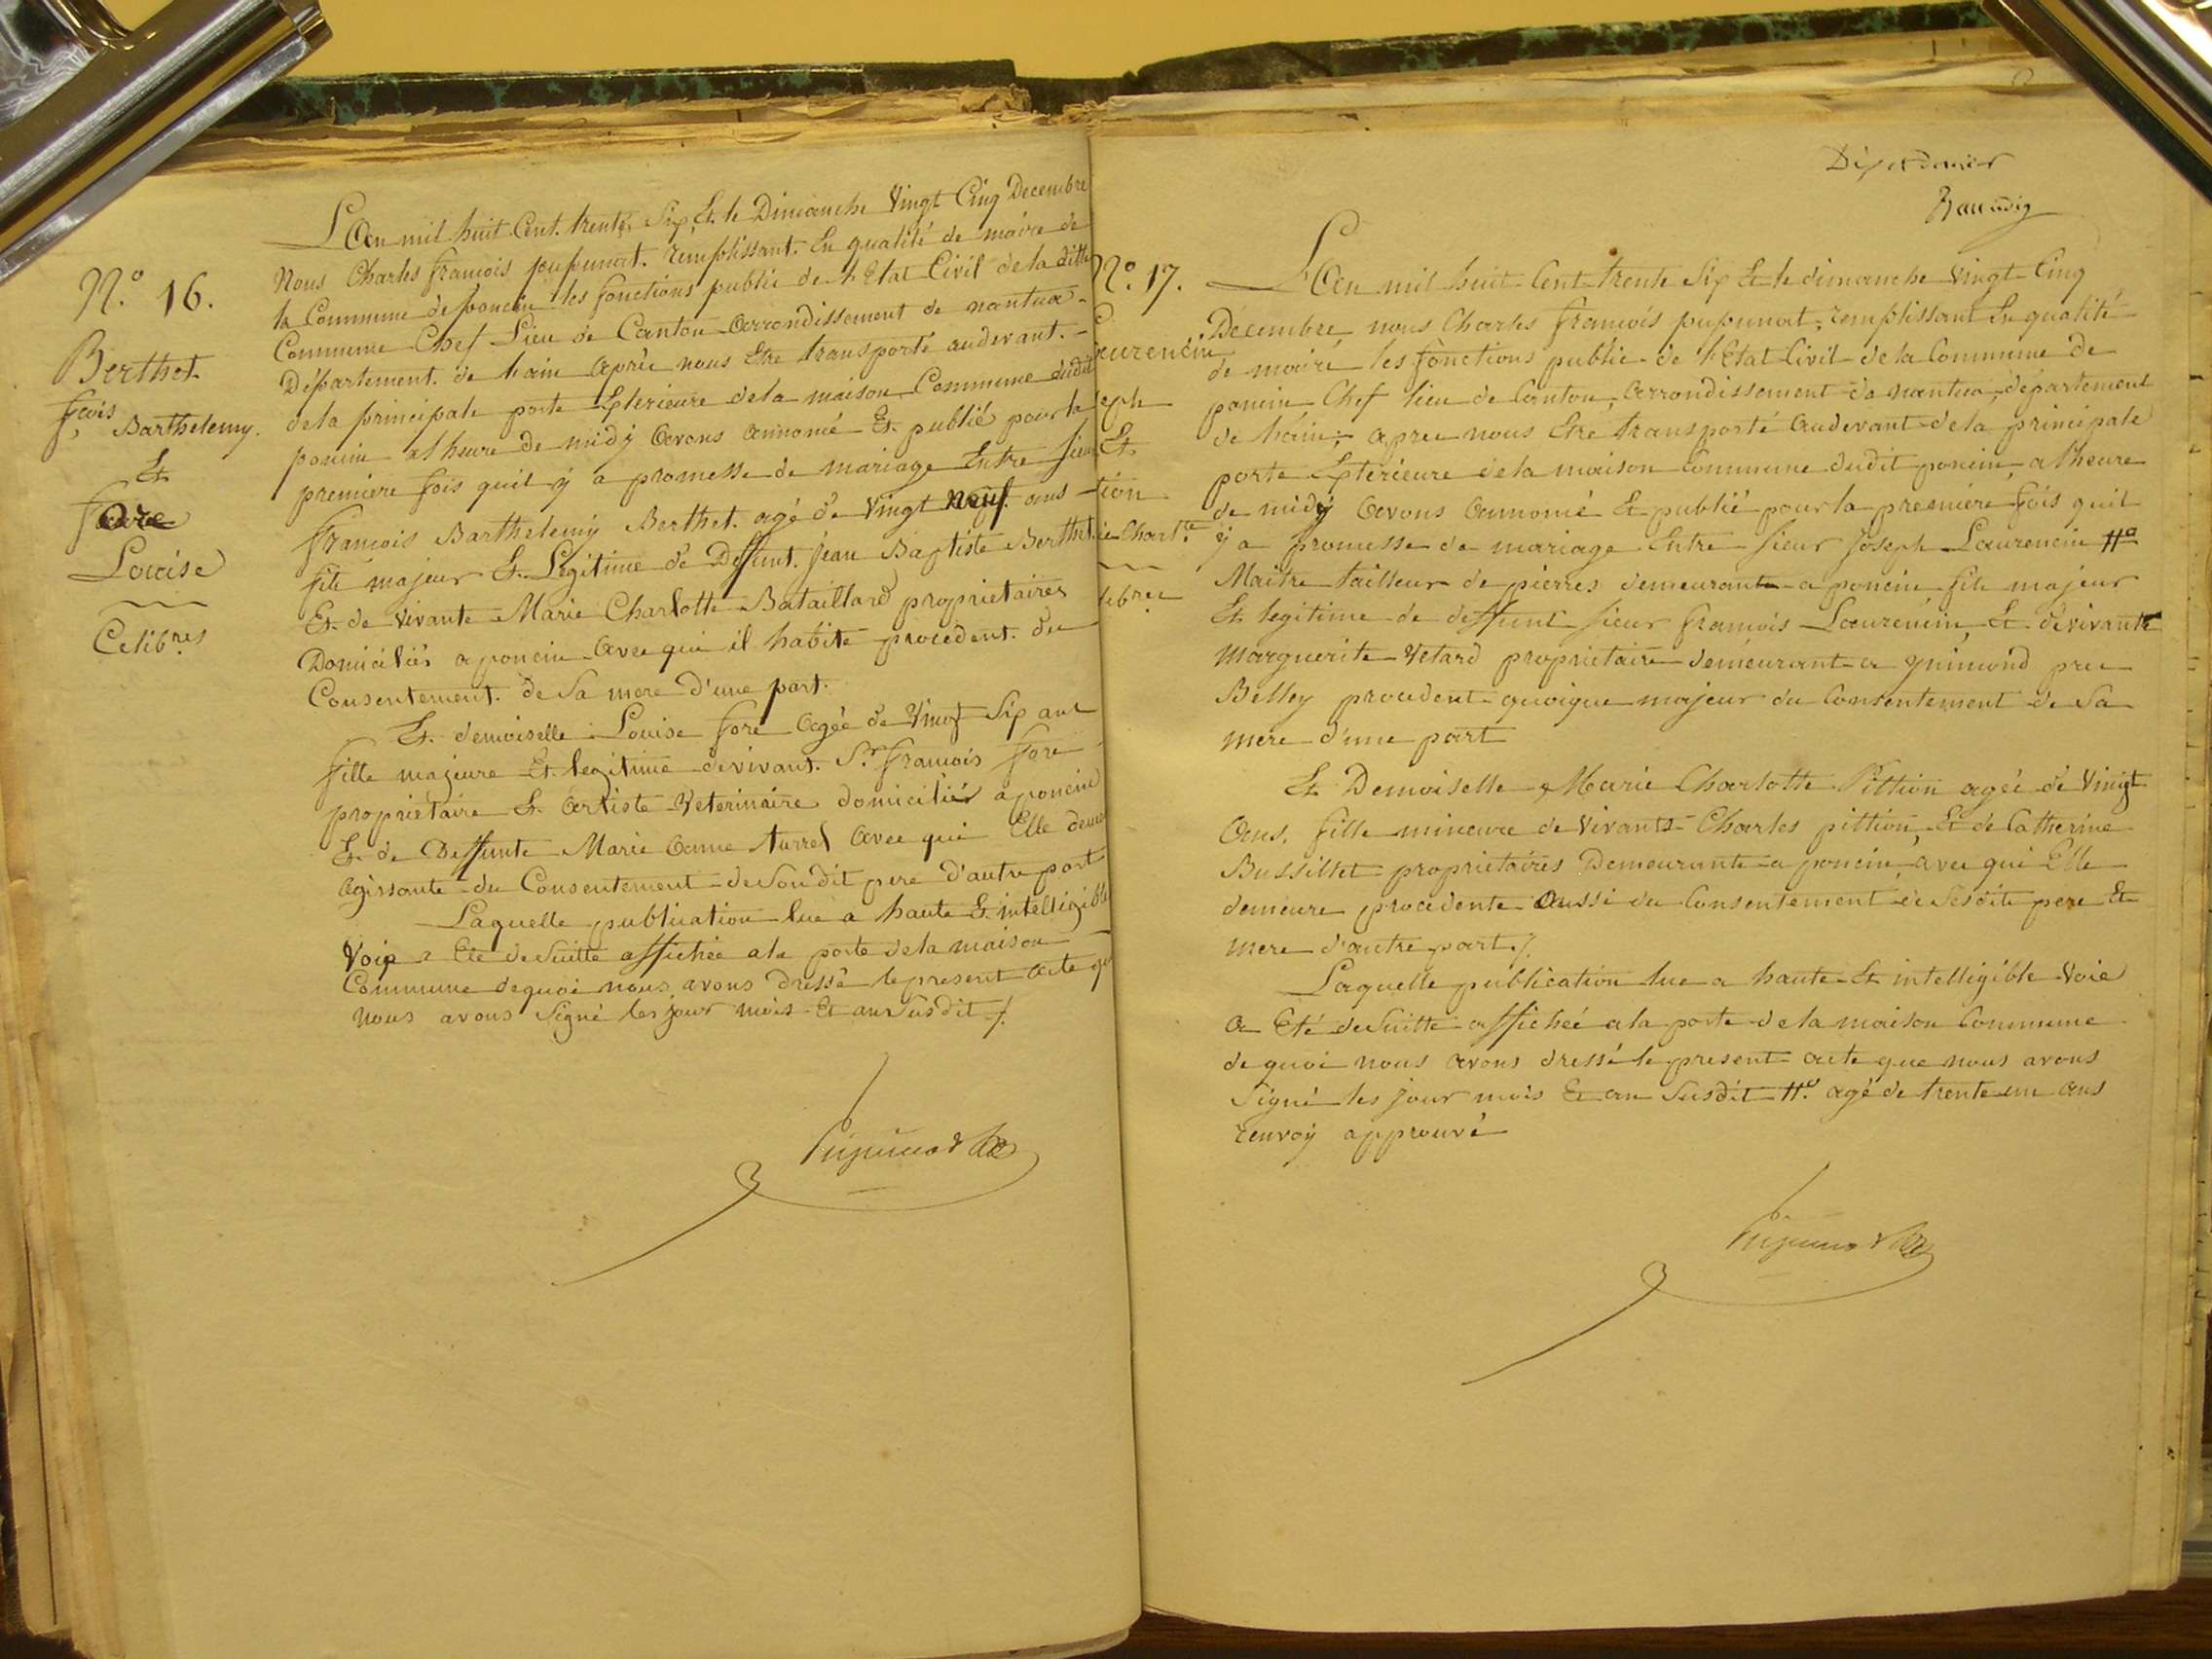 N.º 16.
Berthet
fçois Barthelemy.
Et
fore
Louise
Celib.res
L'an mil huit Cent trente Six, Et le Dimanche Vingt Cinq Decembre
Nous Charles francois pupunat. remplissant. En qualité de maire de
la Commune de poncin les fonctions public de l'Etat Civil de la ditte
Commune Chef Lieu de Canton arrondissement de nantua
Département. de l'ain après nous Etre transporté audevant.
de la principale porte Exterieure de la maison Commune dudit
poncin al heure de midy avons annoncé Et publié pour la
premiere fois quil y a promesse de mariage Entre sieur
francois Barthelemy Berthet. agé de Vingt neuf ans
fils majeur Et Legitime de Deffunt. Jean Baptiste Berthet
Et de vivante Marie Charlotte Bataillard proprietaires
Domiciliés a poncin Avec qui il habite procedent. du
Consentement. de Sa mere d'une part.
Et. demoiselle Louise fore agée de Vingt Six ans
fille majeure Et legitime de vivant. S.r francois fore
proprietaire Et artiste Veterinaire domiciliés a poncin
Et de Deffunte Marie anne Aurrel avec qui Elle demeu
agissante du Consentement de Son dit pere d'autre part
Laquelle publication lue a haute Et intelligible
Voix a Eté de Suitte affichée a la porte de la maison
Commune de quoi nous avons dressé le present acte que
nous avons Signé les jour mois Et an Susdit /.
Pupunat
Dix et dernier
N.º 17.
aurencin
eph
Et
tion
ie Chart.te
libres
L'an mil huit Cent trente Six Et le dimanche vingt Cinq
Decembre nous Charles francois pupunat, remplissant En qualité
de maire les fonctions public de l'Etat Civil de la Commune de
poncin Chef lieu de Canton, arrondissement de nantua, département
de l'ain, apres nous Etre transporté audevant de la principale
porte Exterieure de la maison Commune dudit poncin, a l'heure
de midy avons annoncé Et publié pour la premiere fois quil
y a promesse de mariage Entre sieur Joseph Laurencin #a
Maitre tailleur de pierres demeurant a poncin fils majeur
Et legitime de deffunt sieur francois Laurencin, Et de vivante
Marguerite Vetard proprietaire demeurant a ynimond pres
Belley procedent quoique majeur du Consentement de Sa
mere d'une part
Et Demoiselle Marie Charlotte Pittion agée de Vingt
ans, fille mineure de Vivants Charles pittion, Et de Catherine
Bussillet proprietaires Demeurante a poncin, avec qui Elle
demeure procedente aussi du Consentement de Sesdits pere Et
mere d'autre part./.
Laquelle publication lue a haute Et intelligible Voix
a Eté de Suitte affichée a la porte de la maison Commune
de quoi nous avons dressé le present acte que nous avons
Signé les jour mois Et an Susdit #a. agé de trente un ans
renvoy approuvé
Pupunat